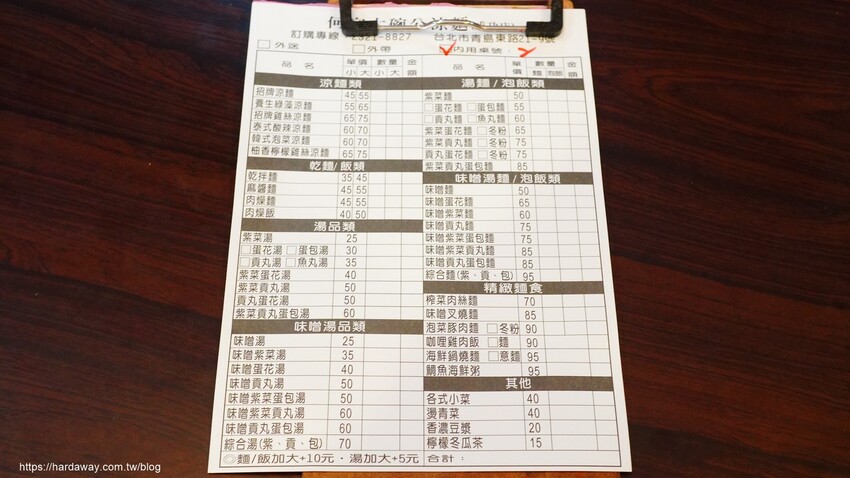 訂購專線 2321-8827 台北市青島東路21-9號
外送 外帶 內用桌號:
品名 單價 小 大 數量 小 大 金額
涼麵類
招牌涼麵 45 55
養生綠藻涼麵 55 65
招牌雞絲涼麵 65 75
泰式酸辣涼麵 60 70
韓式泡菜涼麵 60 70
柚香檸檬雞絲涼麵 65 75
乾麵/飯類
乾拌麵 35 45
麻醬麵 45 55
肉燥麵 45 55
肉燥飯 40 50
湯品類
紫菜湯 25
蛋花湯 蛋包湯 30
貢丸湯 魚丸湯 35
紫菜蛋花湯 40
紫菜貢丸湯 50
貢丸蛋花湯 50
紫菜貢丸蛋包湯 60
味噌湯品類
味噌湯 25
味噌紫菜湯 35
味噌蛋花湯 40
味噌貢丸湯 50
味噌紫菜蛋包湯 50
味噌紫菜貢丸湯 60
味噌貢丸蛋包湯 60
綜合湯(紫、貢、包) 70
麵/飯加大+10元‧湯加大+5元
品名 單價 數量 麵 泡飯 金額
湯麵/泡飯類
紫菜麵 50
蛋花麵 蛋包麵 55
貢丸麵 魚丸麵 60
紫菜蛋花麵 冬粉 65
紫菜貢丸麵 冬粉 75
貢丸蛋花麵 冬粉 75
紫菜貢丸蛋包麵 85
味噌湯麵/泡飯類
味噌麵 50
味噌蛋花麵 65
味噌紫菜麵 60
味噌貢丸麵 75
味噌紫菜蛋包麵 75
味噌紫菜貢丸麵 85
味噌貢丸蛋包麵 85
綜合麵(紫、貢、包) 95
精緻麵食
榨菜肉絲麵 70
味噌叉燒麵 85
泡菜豚肉麵 冬粉 90
咖哩雞肉飯 麵 90
海鮮鍋燒麵 意麵 95
鯛魚海鮮粥 95
其他
各式小菜 40
燙青菜 40
香濃豆漿 20
檸檬冬瓜茶 15
合計:
https://hardaway.com.tw/blog